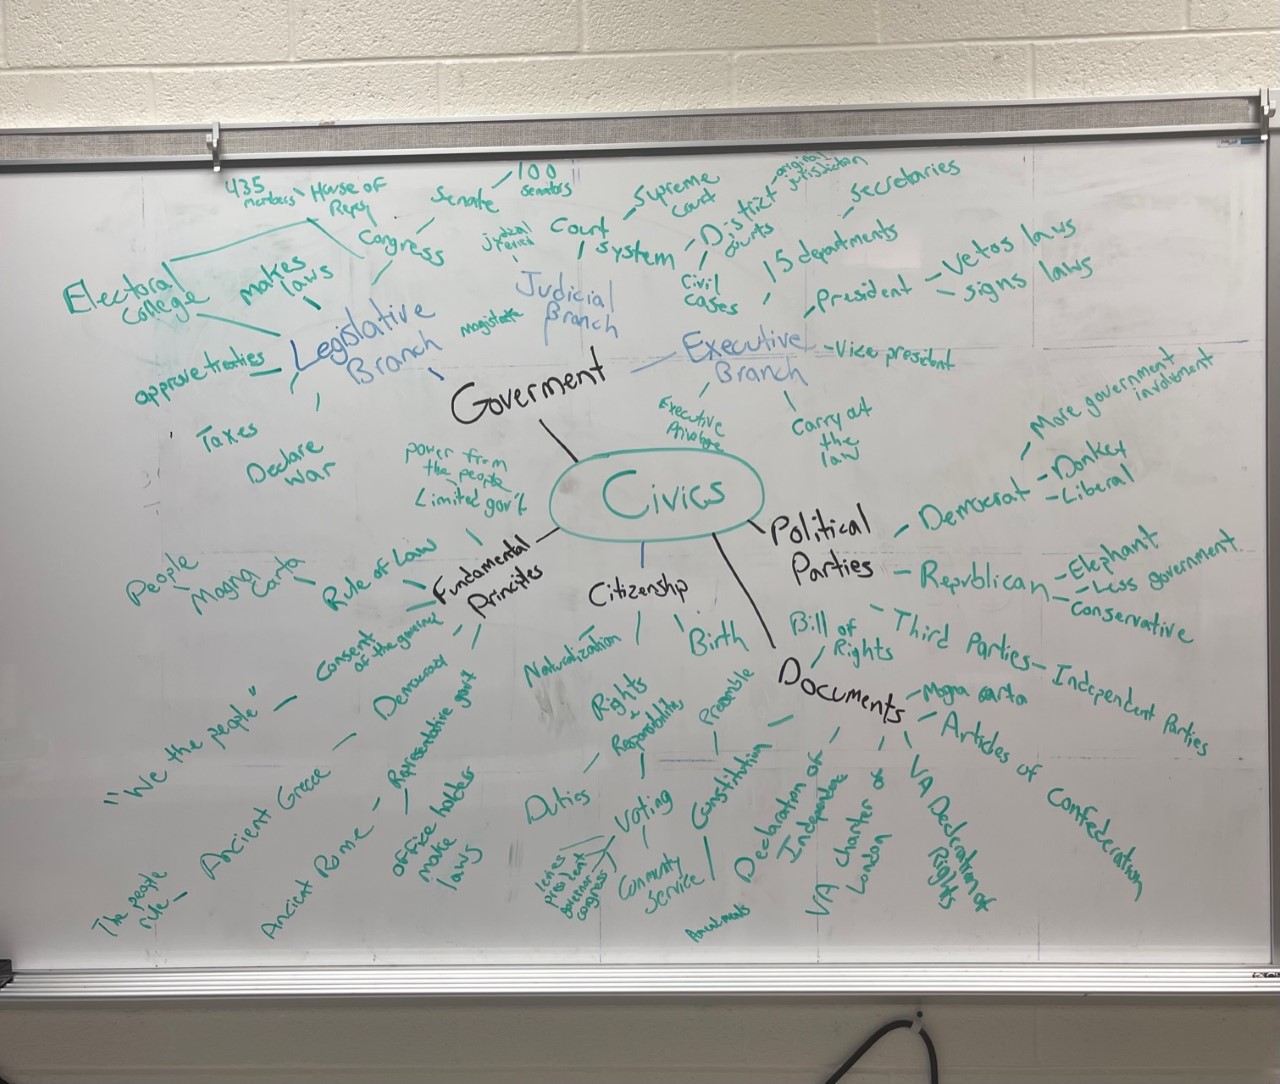 435
members
House of
Reps
Senate
100
senators
Congress
Electoral
College
makes
laws
approve treaties
Taxes
Declare
war
Legislative
Branch
judicial
review
Court
system
Supreme
Court
District
Courts
original
jurisdiction
Civil
cases
Magistrate
Judicial
Branch
Secretaries
15 departments
President
Vetos laws
signs laws
Vice president
Executive
Branch
Executive
Carry out
the
law
Goverment
Civics
power from
the people
Limited gov't
Fundamental
Principles
Rule of Law
Magna
Carta
People
Consent
of the governed
"We the people"
Democracy
Ancient Greece
The people
rule
Representative gov't
Ancient Rome
office holders
make
laws
Citizenship
Naturalization
Birth
Rights
+
Responsibility
Duties
Voting
president
governor
congress
Community
Service
Political
Parties
Democrat
More government
involvment
Donkey
Liberal
Republican
Elephant
Less government
Conservative
Third Parties
Independent Parties
Documents
Bill of
Rights
Magna carta
Articles of Confederation
VA Declaration of
Rights
VA Charter of
London
Declaration of
Independence
Constitution
Preamble